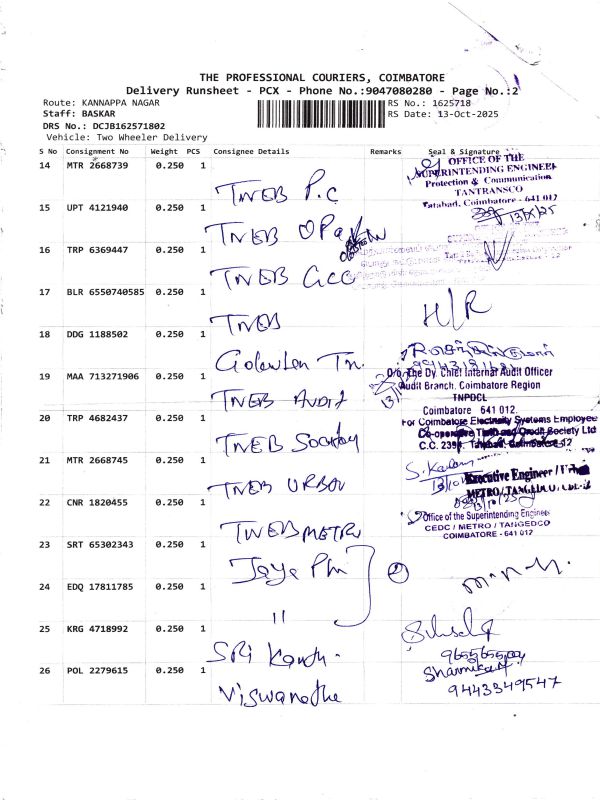 THE PROFESSIONAL COURIERS, COIMBATORE
Delivery Runsheet - PCX - Phone No.:9047080280 - Page No.:2
Route: KANNAPPA NAGAR RS No.: 1625718
Staff: BASKAR RS Date: 13-Oct-2025
DRS No.: DCJB162571802
Vehicle: Two Wheeler Delivery
S No Consignment No Weight PCS Consignee Details Remarks Seal & Signature
14 MTR 2668739 0.250 1 TNEB P.C
OFFICE OF THE
SUPERINTENDING ENGINEER
Protection & Communication
TANTRANSCO
Tatabad, Coimbatore - 641 012
15 UPT 4121940 0.250 1 TNEB
13/X/25
16 TRP 6369447 0.250 1 TNEB
17 BLR 6550740585 0.250 1 TNEB
H/R
18 DDG 1188502 0.250 1
19 MAA 713271906 0.250 1 TNEB AUDIT
O/o. The Dy. Chief Internal Audit Officer
Audit Branch, Coimbatore Region
TNPDCL
Coimbatore 641 012.
20 TRP 4682437 0.250 1 TNEB Society
For Coimbatore Electricity Systems Employee
Co-operative Thrift and Credit Society Ltd
C.C. 2394, Tatabad, Coimbatore-12
21 MTR 2668745 0.250 1 TNEB URBAN
Executive Engineer / Urban
METRO/TANGEDCO/CBE-12
22 CNR 1820455 0.250 1 TNEB METRO
Office of the Superintending Engineer
CEDC / METRO / TANGEDCO
COIMBATORE - 641 012
23 SRT 65302343 0.250 1 Jaya Pm
2
24 EDQ 17811785 0.250 1 "
25 KRG 4718992 0.250 1 SRi
26 POL 2279615 0.250 1 Viswanatha
9443349547